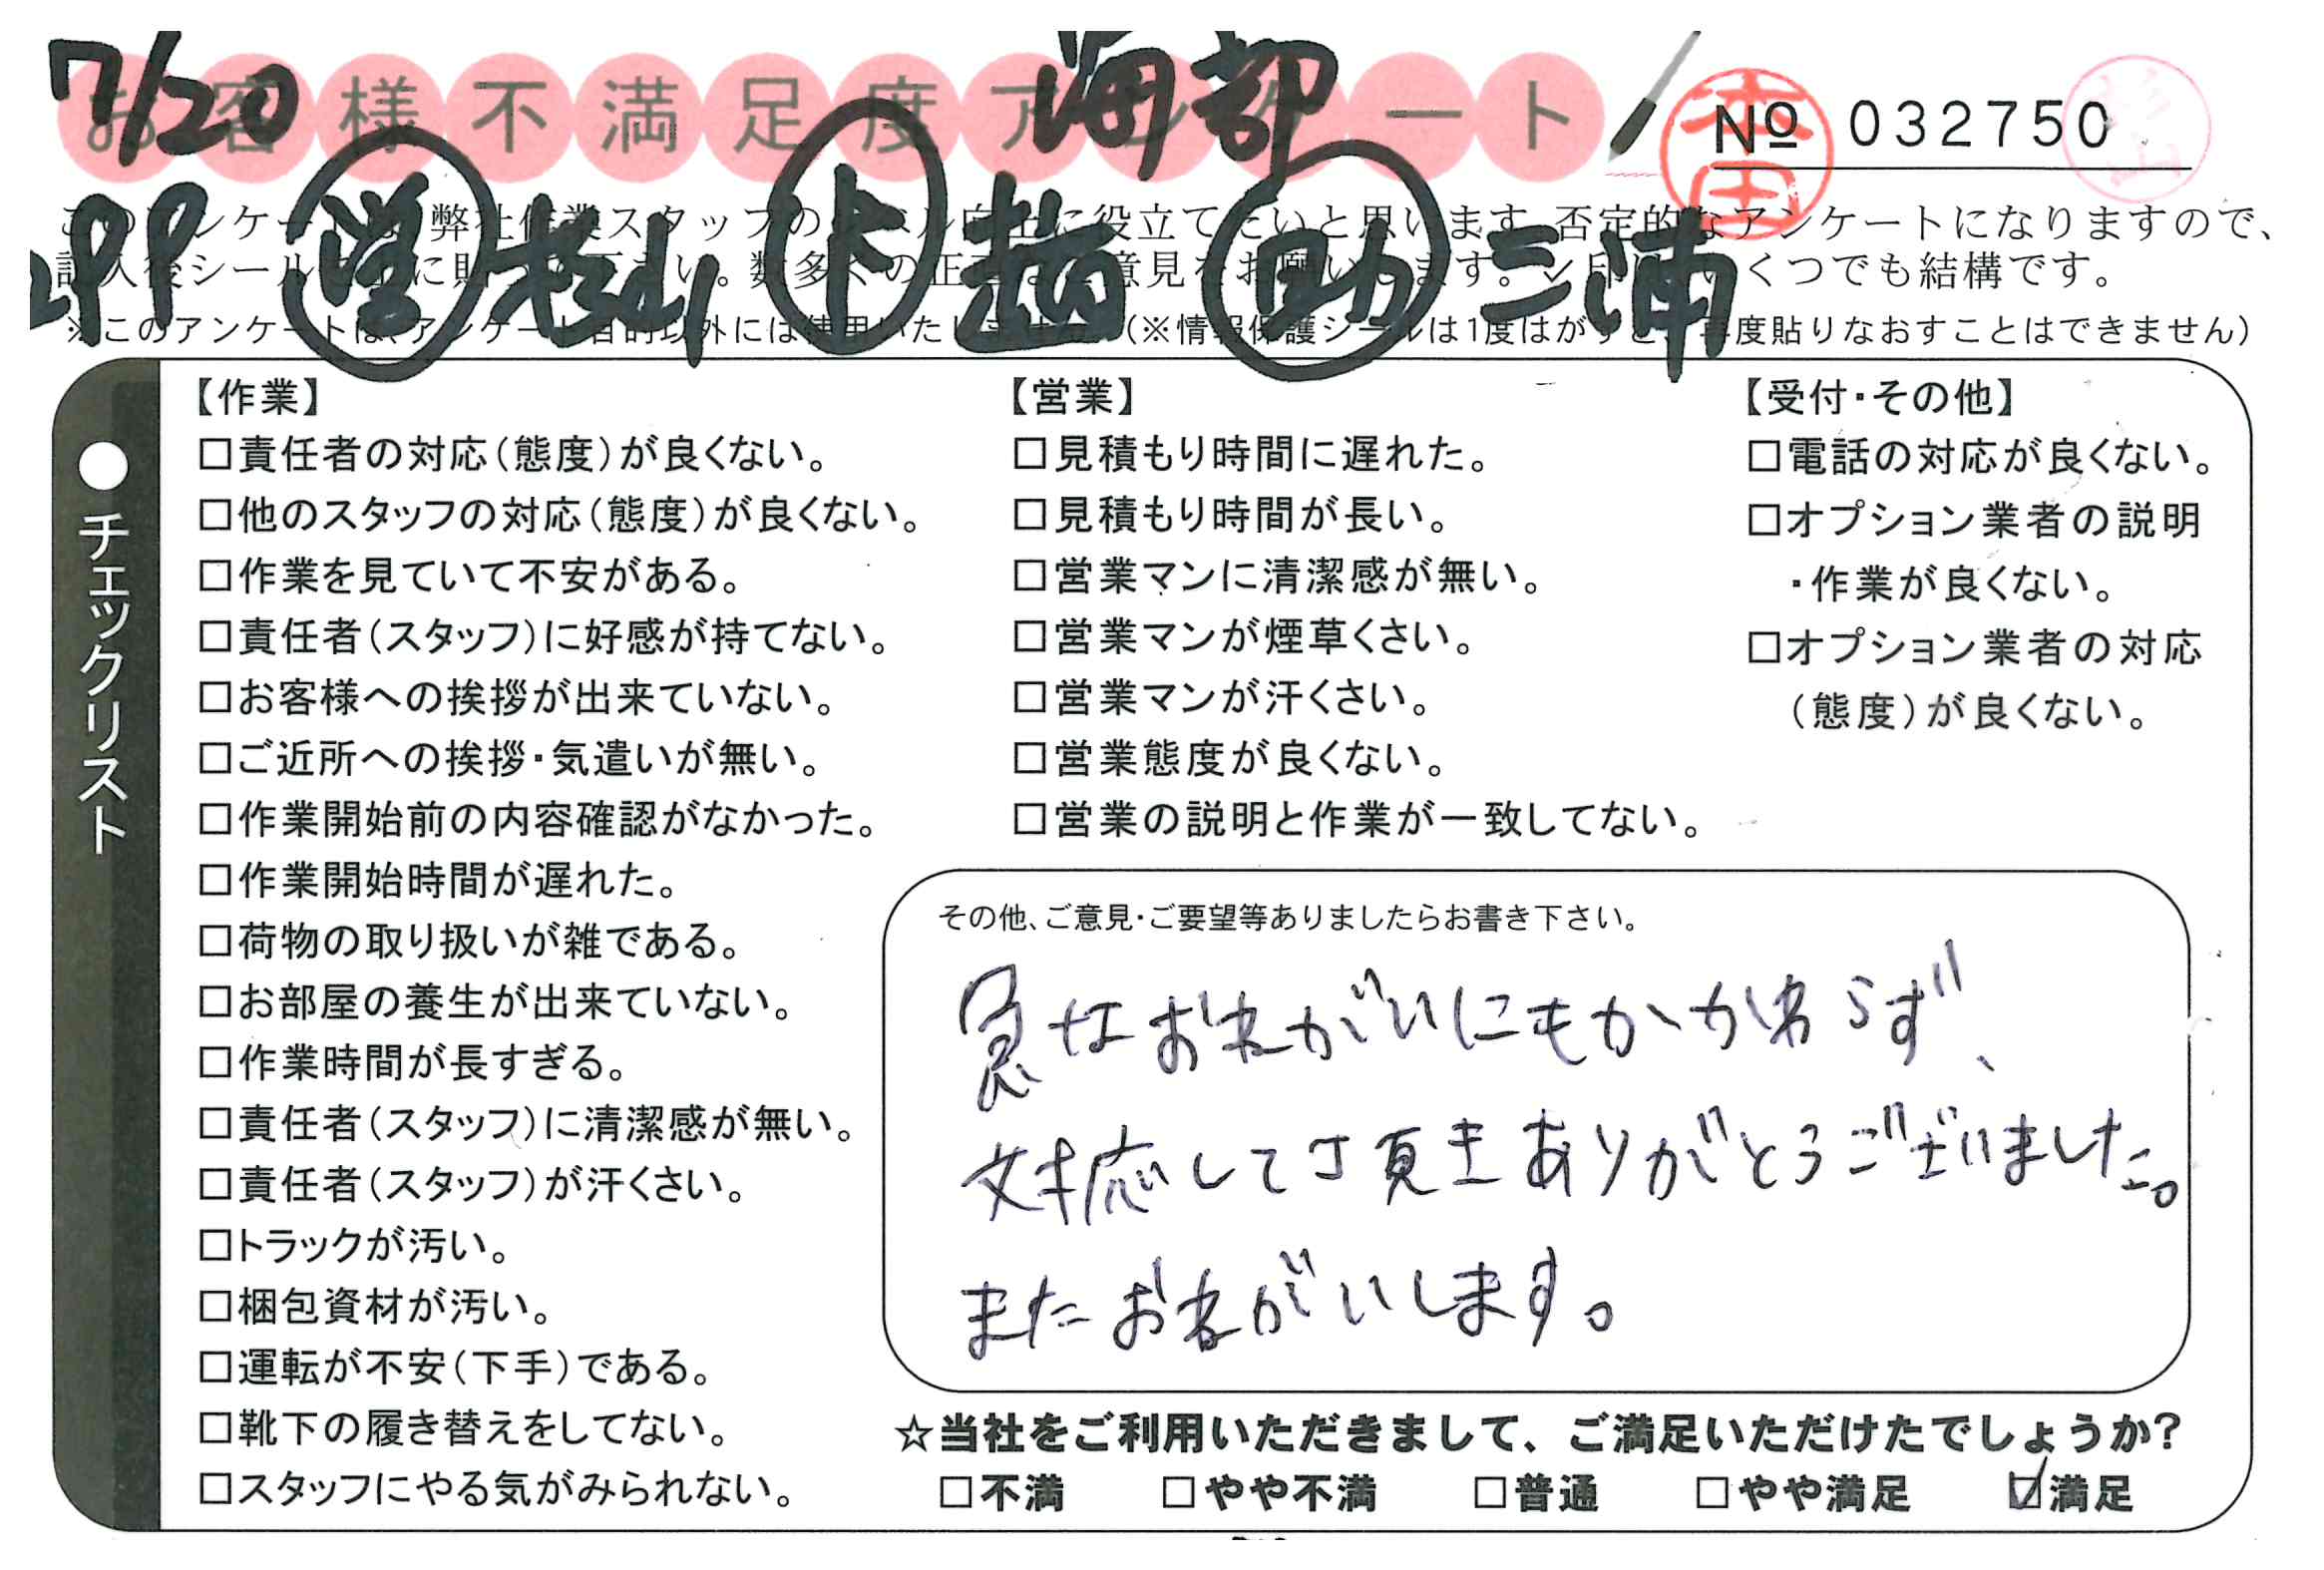 7/20 海部
お客様不満足度アンケート
№ 032750
本田
営 杉山 ト 趙 助 三浦
このアンケートは、弊社作業スタッフのレベル向上に役立てたいと思います。否定的なアンケートになりますので、
記入後シールを上に貼って下さい。数多くの正直なご意見をお願いします。✓印はいくつでも結構です。
※このアンケートは、アンケート目的以外には使用いたしません。（※情報保護シールは1度はがすと、再度貼りなおすことはできません）
●チェックリスト
【作業】
□責任者の対応（態度）が良くない。
□他のスタッフの対応（態度）が良くない。
□作業を見ていて不安がある。
□責任者（スタッフ）に好感が持てない。
□お客様への挨拶が出来ていない。
□ご近所への挨拶・気遣いが無い。
□作業開始前の内容確認がなかった。
□作業開始時間が遅れた。
□荷物の取り扱いが雑である。
□お部屋の養生が出来ていない。
□作業時間が長すぎる。
□責任者（スタッフ）に清潔感が無い。
□責任者（スタッフ）が汗くさい。
□トラックが汚い。
□梱包資材が汚い。
□運転が不安（下手）である。
□靴下の履き替えをしてない。
□スタッフにやる気がみられない。
【営業】
□見積もり時間に遅れた。
□見積もり時間が長い。
□営業マンに清潔感が無い。
□営業マンが煙草くさい。
□営業マンが汗くさい。
□営業態度が良くない。
□営業の説明と作業が一致してない。
【受付・その他】
□電話の対応が良くない。
□オプション業者の説明
・作業が良くない。
□オプション業者の対応
（態度）が良くない。
その他、ご意見・ご要望等ありましたらお書き下さい。
急なおねがいにもかかわらず、
対応して頂きありがとうございました。
またおねがいします。
☆当社をご利用いただきまして、ご満足いただけたでしょうか？
□不満 □やや不満 □普通 □やや満足 ☑満足